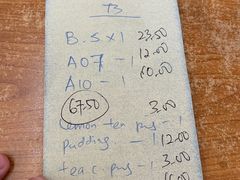 T3
B.S x 1 23.50
A07 - 1 12.00
A10 - 1
67.50
3.00
Lemon tea png - 1
pudding - 1 12.00
tea c. png - 1 3.00